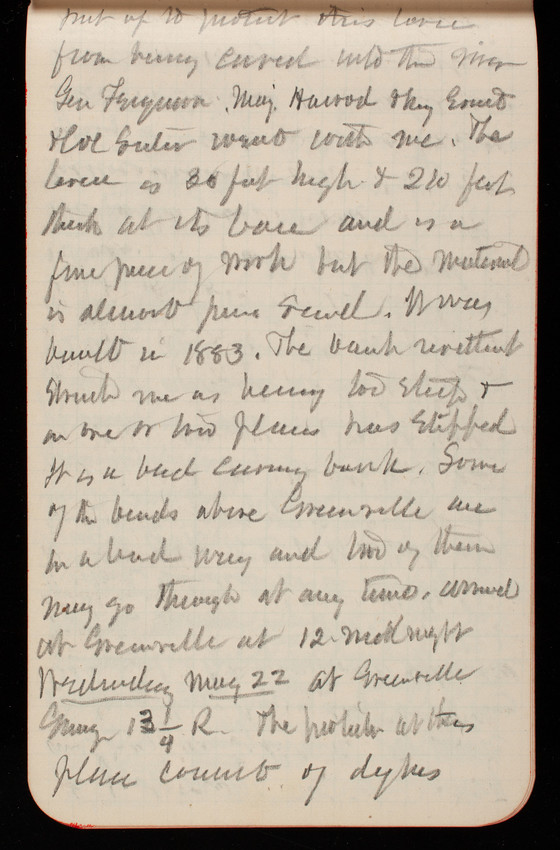 put up to protect this levee
from being caved into the river
Gen Ferguson, Maj. Harrod & Big Count
& Col Suter went with me. The
levee is 30 feet high & 210 feet
thick at its base and is a
fine piece of work but the material
is almost pure sand. It was
built in 1883. The bank revetment
struck me as being too steep &
in one or two places has slipped
It is a bad caving bank. Some
of the bends above Greenville are
in a bad way and two of them
may go through at any time. arrived
at Greenville at 12. midnight
Wednesday May 22 at Greenville
Gauge 13 1/4 R. The protection at this
place consist of dykes